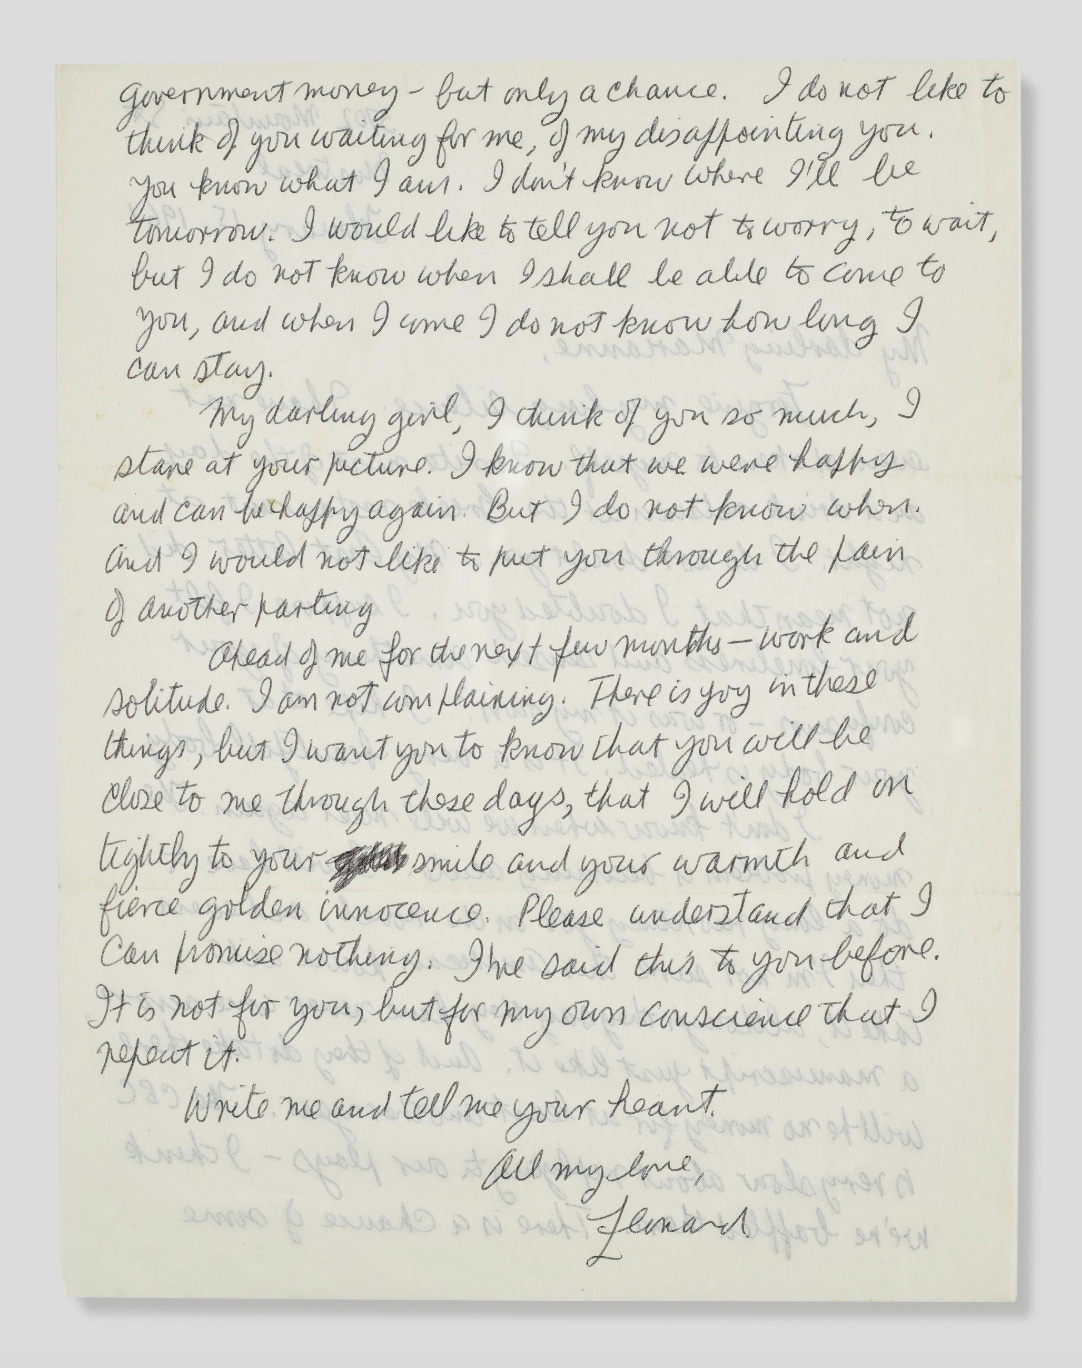 government money – but only a chance. I do not like to
think of you waiting for me, of my disappointing you.
You know what I am. I don't know where I'll be
tomorrow. I would like to tell you not to worry, to wait,
but I do not know when I shall be able to come to
you, and when I come I do not know how long I
can stay.
My darling girl, I think of you so much, I
stare at your picture. I know that we were happy
and can be happy again. But I do not know when.
And I would not like to put you through the pain
of another parting
Ahead of me for the next few months – work and
solitude. I am not complaining. There is joy in these
things, but I want you to know that you will be
close to me through these days, that I will hold on
tightly to your smile and your warmth and
fierce golden innocence. Please understand that I
can promise nothing. I've said this to you before.
It is not for you, but for my own conscience that I
repeat it.
Write me and tell me your heart.
All my love,
Leonard